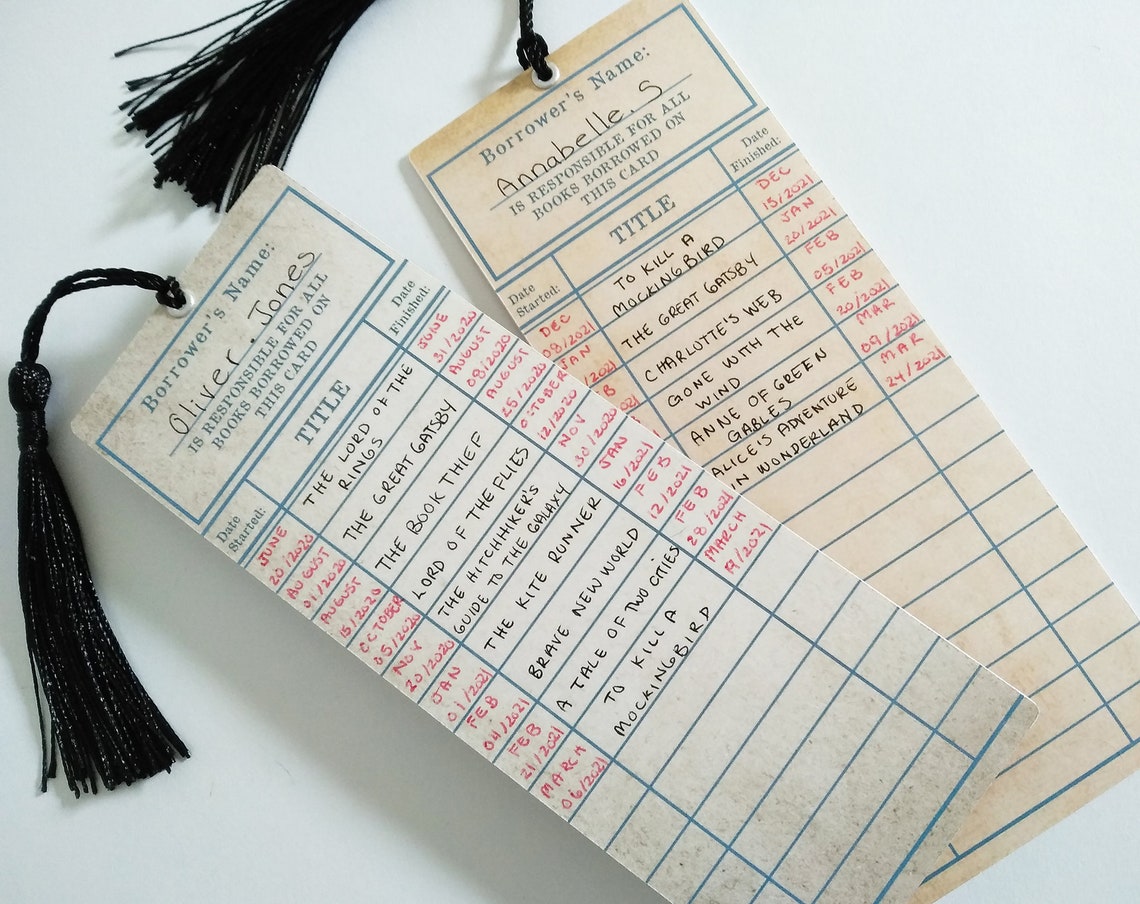 Borrower's Name:
Oliver. Jones
IS RESPONSIBLE FOR ALL
BOOKS BORROWED ON
THIS CARD
Date
Started:
TITLE
Date
Finished:
JUNE
20/2020
THE LORD OF THE
RINGS
JUNE
31/2020
AUGUST
01/2020
THE GREAT GATSBY
AUGUST
08/2020
AUGUST
15/2020
THE BOOK THIEF
AUGUST
25/2020
OCTOBER
05/2020
LORD OF THE FLIES
OCTOBER
12/2020
NOV
20/2020
THE HITCHHIKER'S
GUIDE TO THE GALAXY
NOV
30/2020
JAN
01/2021
THE KITE RUNNER
JAN
16/2021
FEB
04/2021
BRAVE NEW WORLD
FEB
12/2021
FEB
21/2021
A TALE OF TWO CITIES
FEB
28/2021
MARCH
06/2021
TO KILL A
MOCKINGBIRD
MARCH
19/2021
Borrower's Name:
Annabelle. S
IS RESPONSIBLE FOR ALL
BOOKS BORROWED ON
THIS CARD
Date
Started:
TITLE
Date
Finished:
DEC
08/2021
TO KILL A
MOCKINGBIRD
DEC
15/2021
JAN
THE GREAT GATSBY
JAN
20/2021
CHARLOTTE'S WEB
FEB
05/2021
GONE WITH THE
WIND
FEB
20/2021
ANNE OF GREEN
GABLES
MAR
09/2021
ALICE'S ADVENTURE
IN WONDERLAND
MAR
24/2021